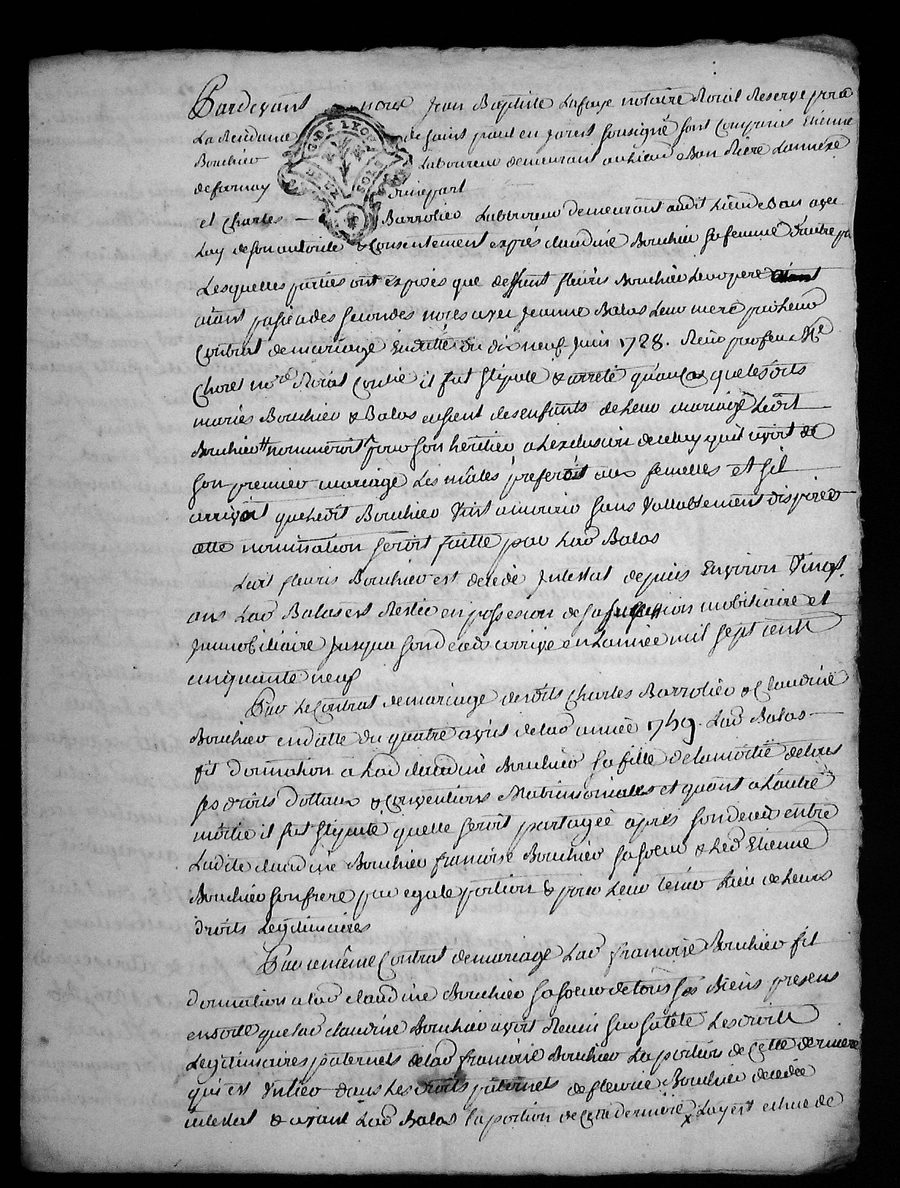 Pardevant nous Jean Baptiste Lafaye notaire Roial Reservé pour
La Residance de saint paul en Jarest soussigné sont Comparus Etienne
Bouchier Laboureur demeurant au lieu de Ban
de farnay d'une part
G. DE LYON
DEUX SOLS
et Charles Barrolier Laboureur demeurant audit Lieu de Ban avec
Luy de son autorité & Consentement exprés claudine Bouchier sa femme d'autre pa
Lesquelles parties ont exposés que deffunt fleuris Bouchier Leur pere
aiant passé a des secondes noces avec Jeanne Balas Leur mere par Leur
Contrat de mariage En datte du dix neuf Juin 1728. Reçu par feu Me
Choret nore Roial Entre il fut stipulé & arreté qu'au cas que lesdits
mariés Bouchier & Balas eussent des enfants de Leur mariage Ledit
Bouchier nommeroit pour son heritier a L'exclusion de celuy qu'il avoit de
son premier mariage Les mâles preferés aux femelles et s'il
arrivoit que Ledit Bouchier Vint a mourir sans Vallablement disposer
cette nomination seroit faitte par Lad Balas
Ledit fleuris Bouchier est decedé Intestat depuis Environ Vingt
ans Lad Balas est Restée en possession de sa succession mobiliaire et
Immobiliaire Jusqua son decés arrivé en L'année mil sept cent
cinquante neuf
Par Le Contrat de mariage desdits Charles Barrolier & Claudine
Bouchier en datte du quatre avril de lad année 1749. Lad Balas
fit donnation a Lad claudine Bouchier sa fille de la moitié de tous
ses droits dottaux & Conventions Matrimoniales et quant a L'autre
moitié il fut stipulé quelle seroit partagée apres son deced entre
Ladite claudine Bouchier francoise Bouchier sa soeur & Led Etienne
Bouchier son frere par egale portion & pour Leur tenir Lieu de Leurs
droits Legitimaires
Par ce même Contrat de mariage Lad francoise Bouchier fit
donnation a Lad claudine Bouchier sa soeur de tous ses Biens presens
en sorte que Lad claudine Bouchier avoit Reuni sur sa tête Les droits
Legitimaires paternels de Lad francoise Bouchier La portion de Cette derniere
qui est dans Les droits paternels de fleurie Bouchier decedée
intestat & avant Lad Balas La portion de Cette derniere de